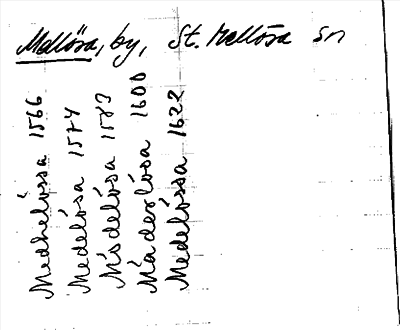 Mellösa, by, St. Mellösa sn
Medhelössa 1566
Medelösa 1574
Modelösa 1583
Maderlösa 1600
Medelössa 1622